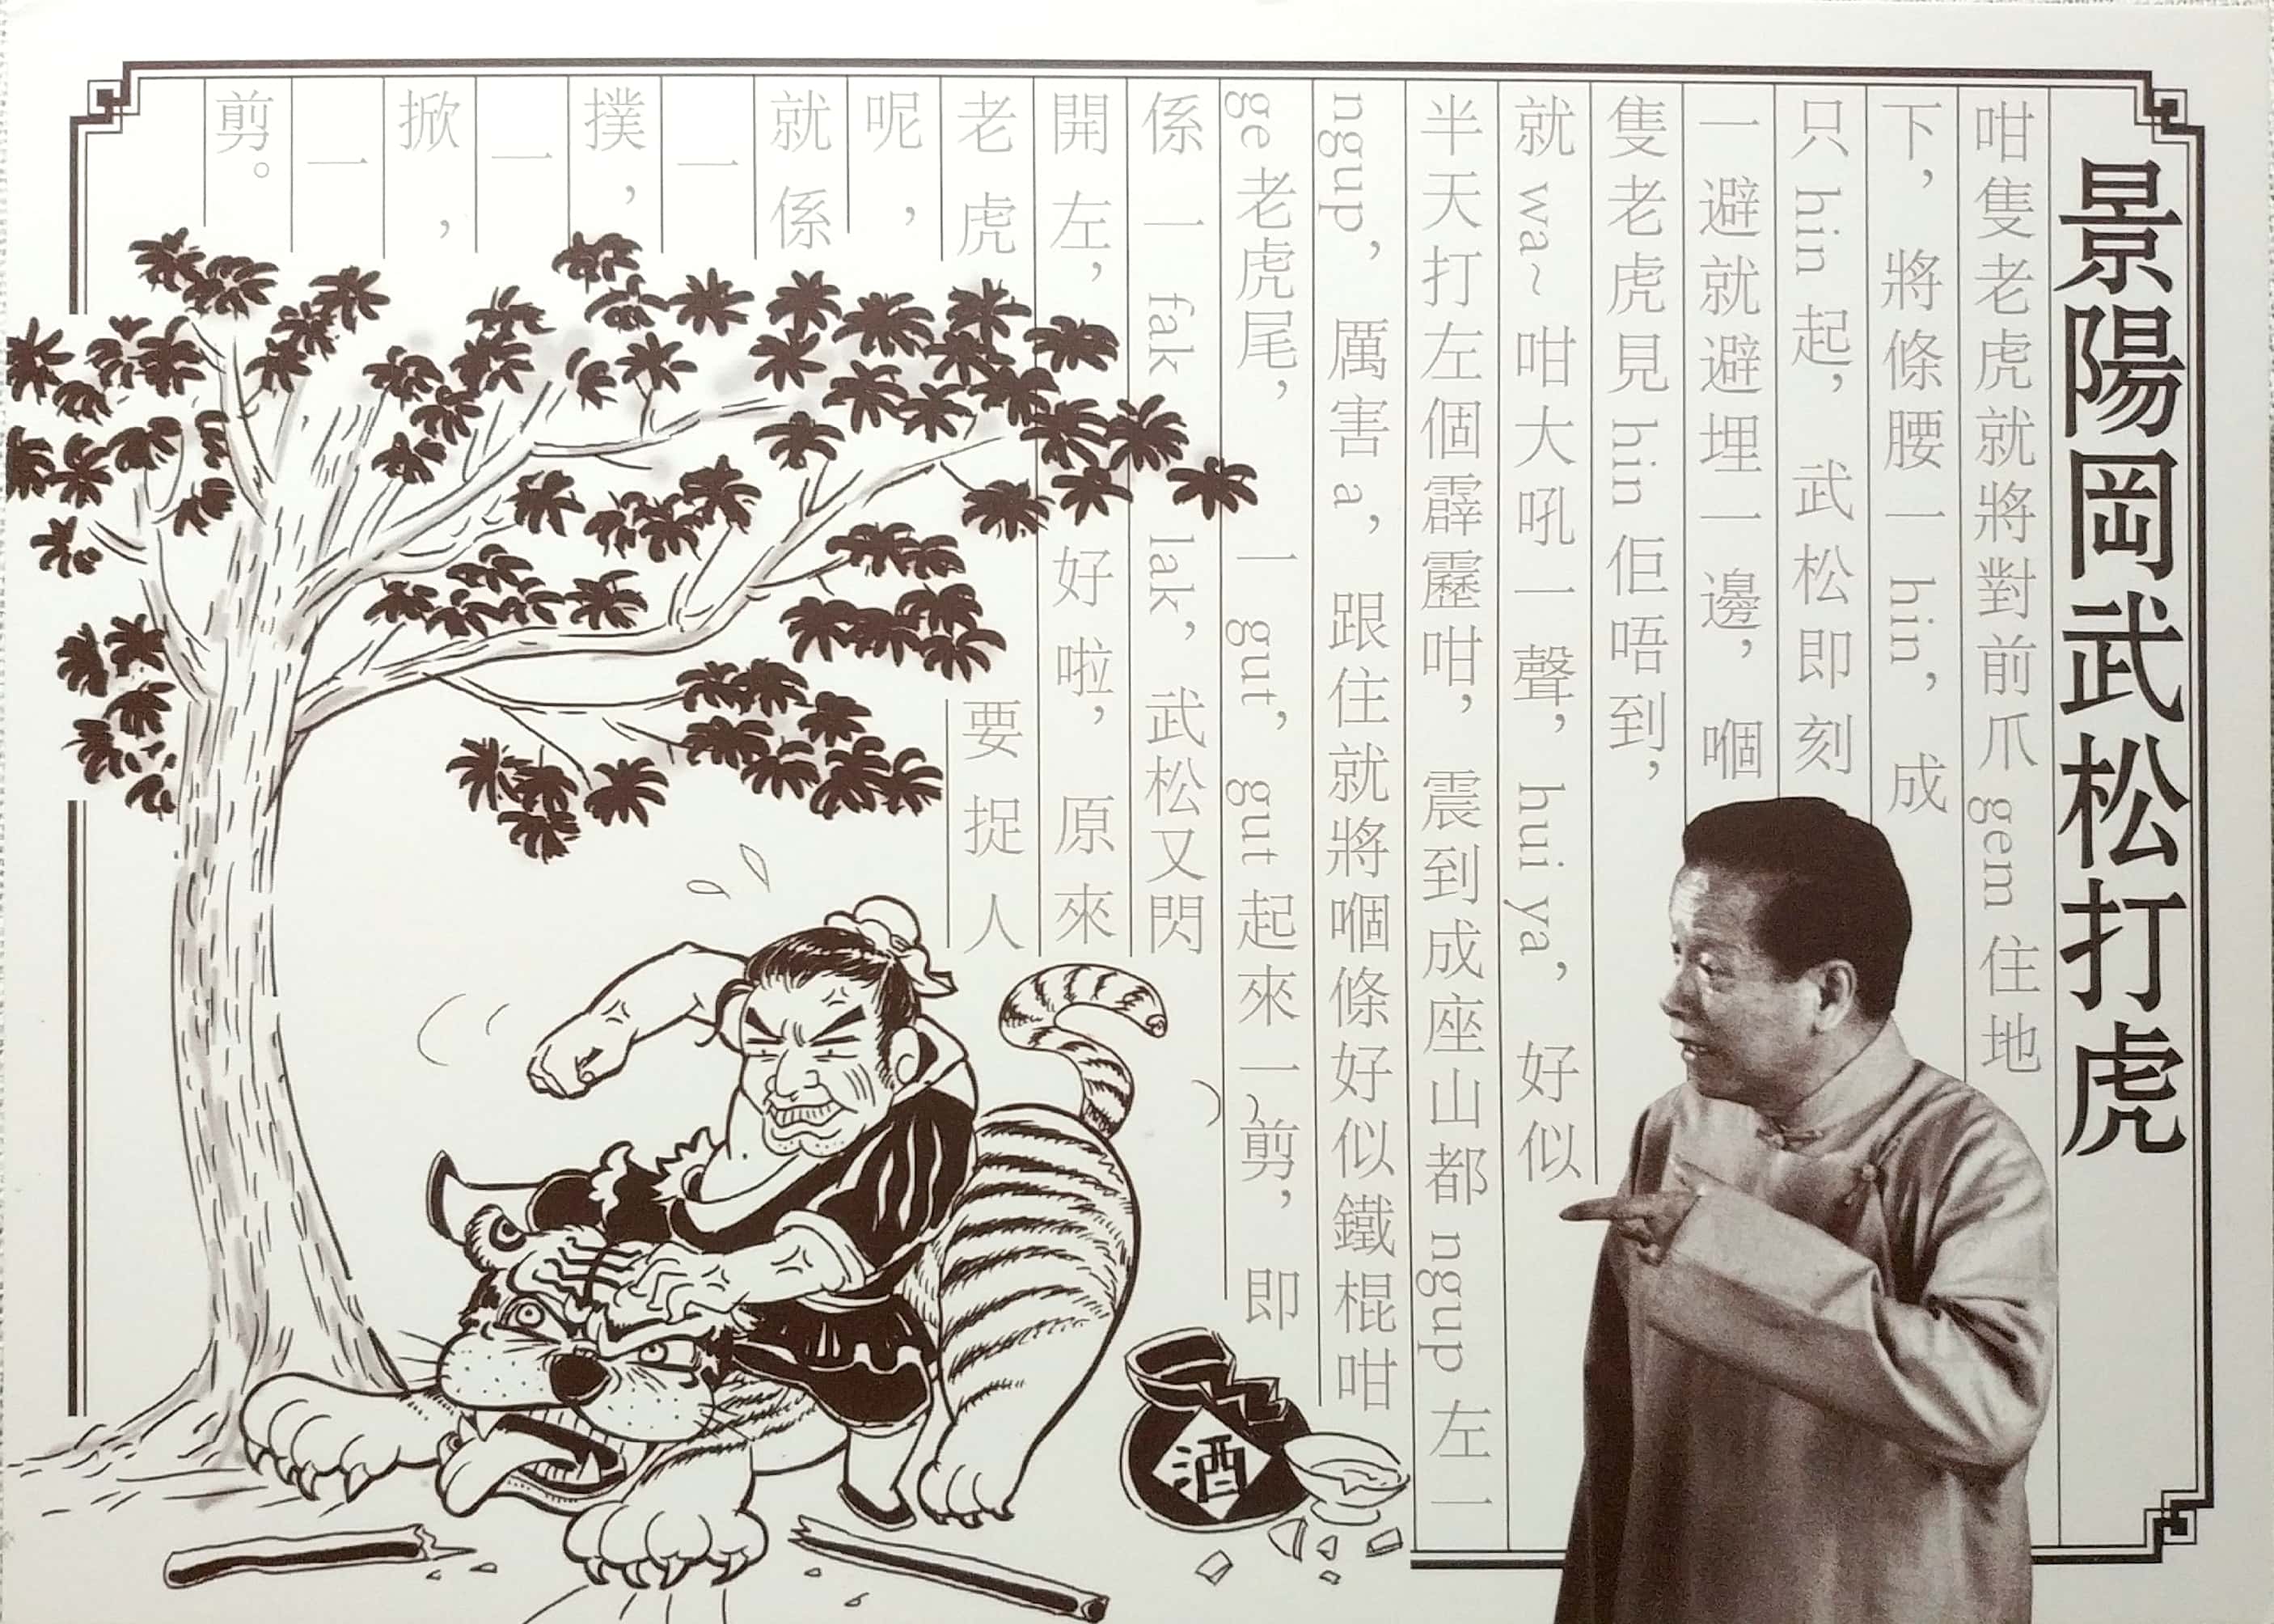 景陽岡武松打虎
咁隻老虎就將對前爪 gem 住地
下，將條腰一 hin，成
只 hin 起，武松即刻
一避就避埋一邊，嗰
隻老虎見 hin 佢唔到，
就 wa~ 咁大吼一聲，hui ya，好似
半天打左個霹靂咁，震到成座山都 ngup 左一
ngup，厲害 a，跟住就將嗰條好似鐵棍咁
ge 老虎尾，一 gut，gut 起來一剪，即
係一 fak lak，武松又閃
開左，好啦，原來
老虎要捉人
呢，
就係
一
撲，
一
掀，
一
剪。
酒